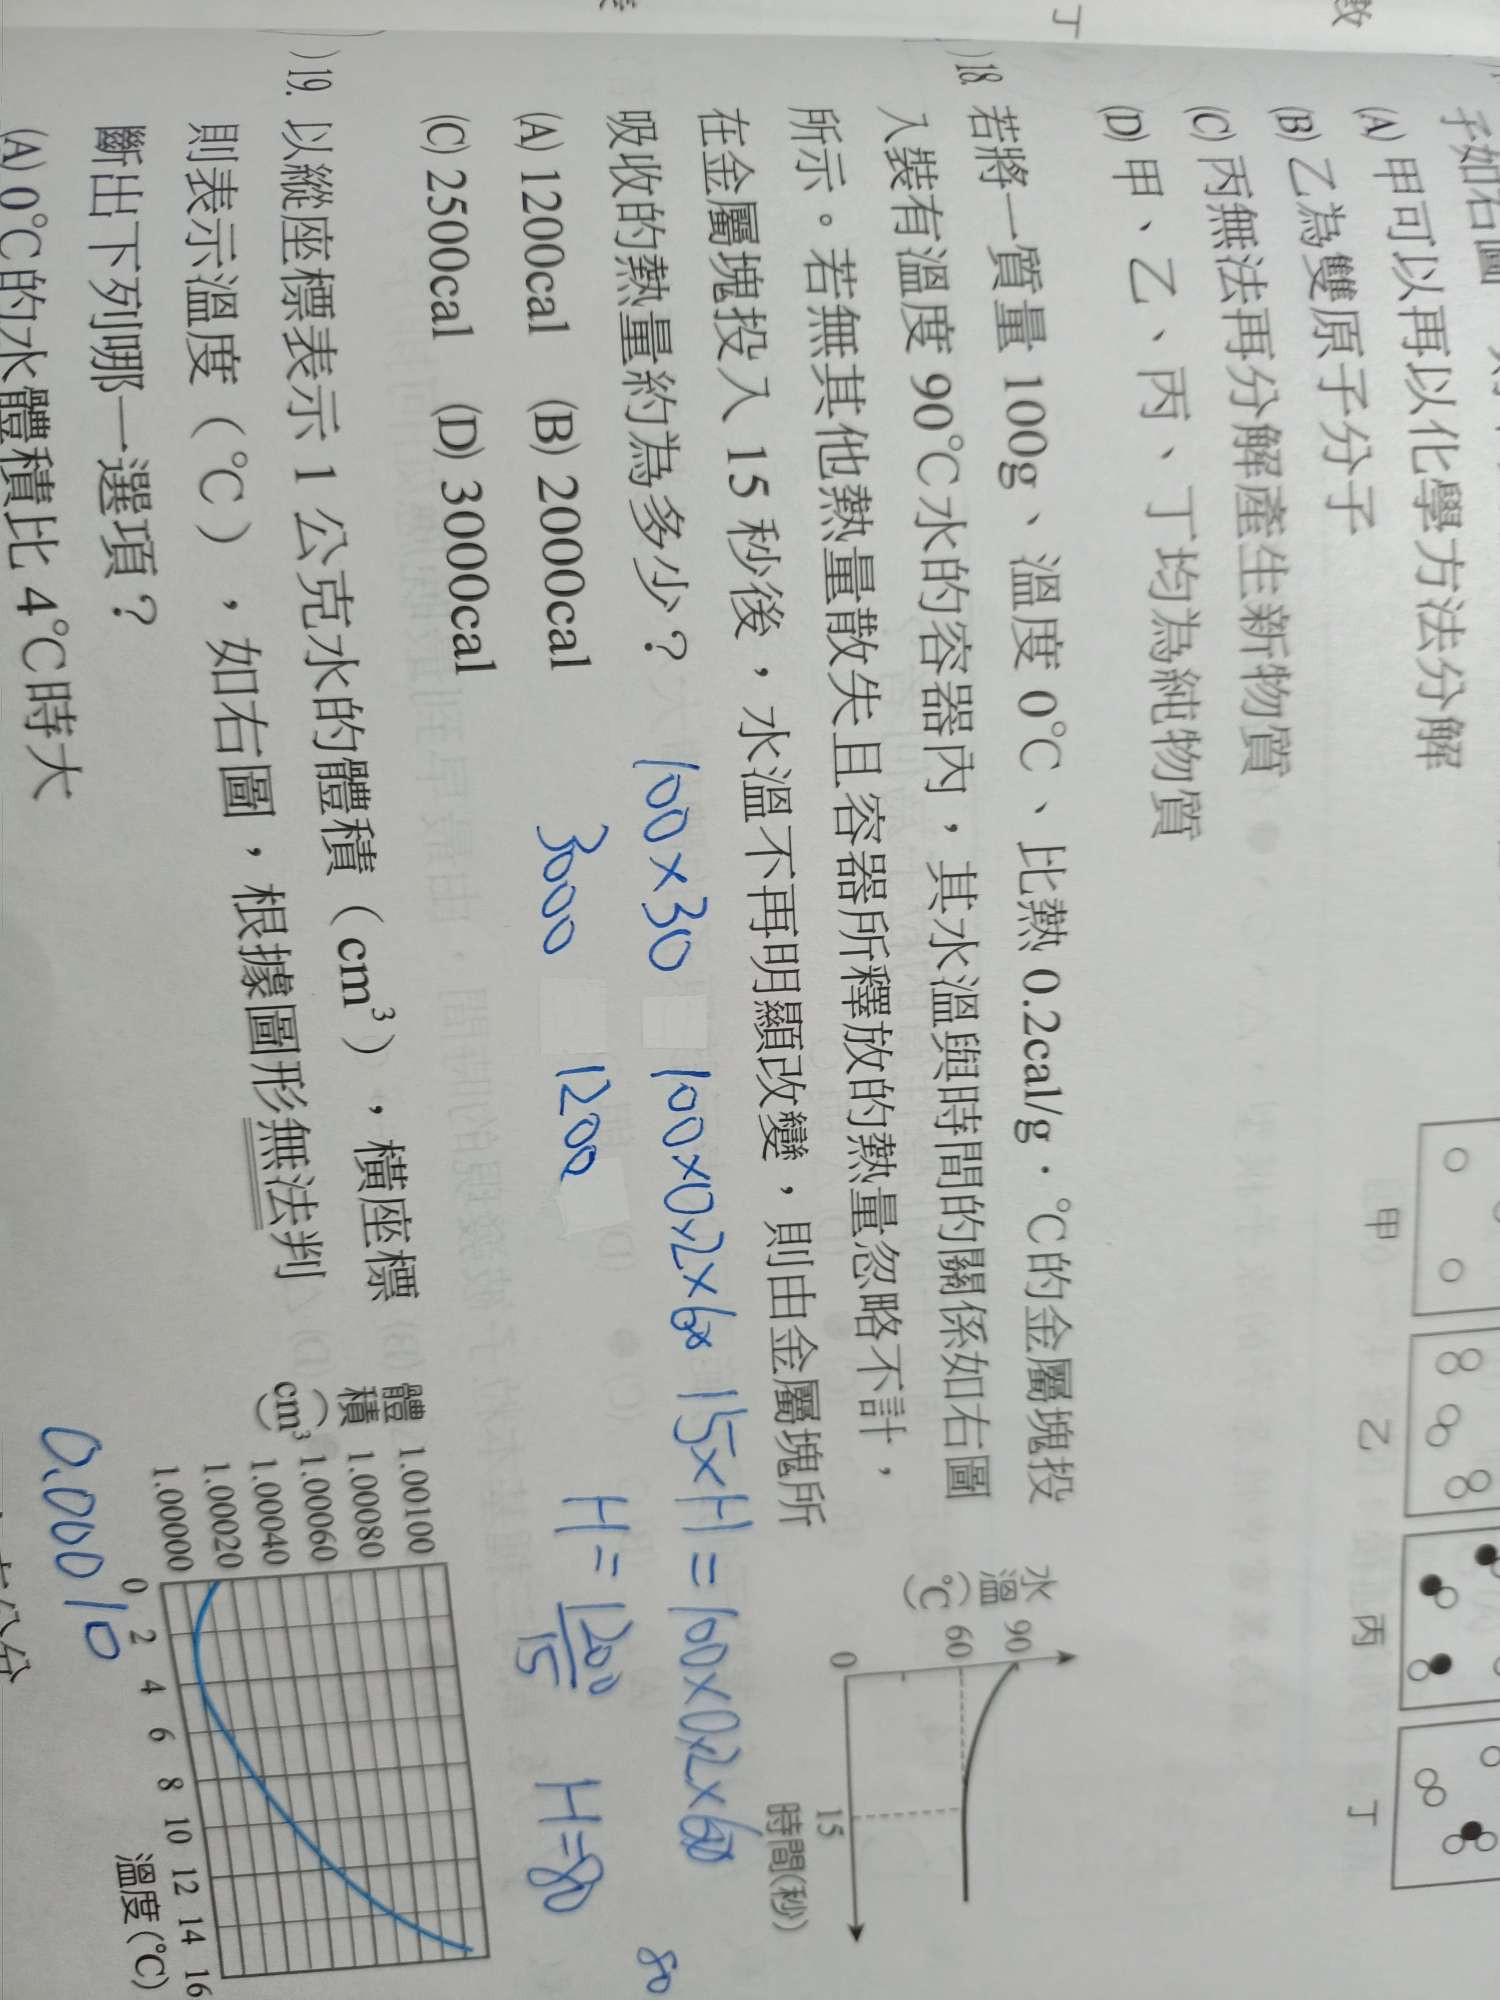 數
丁
子如右圖
(A) 甲可以再以化學方法分解
(B) 乙為雙原子分子
(C) 丙無法再分解產生新物質
(D) 甲、乙、丙、丁均為純物質
甲 乙 丙 丁
)18. 若將一質量 100g、溫度 0℃、比熱 0.2cal/g·℃的金屬塊投
入裝有溫度 90℃水的容器內,其水溫與時間的關係如右圖
所示。若無其他熱量散失且容器所釋放的熱量忽略不計,
在金屬塊投入 15 秒後,水溫不再明顯改變,則由金屬塊所
吸收的熱量約為多少?
(A) 1200cal (B) 2000cal
(C) 2500cal (D) 3000cal
水溫(℃)
90
60
0
15
時間(秒)
100×30 100×0.2×60 15×H=100×0.2×60
3000 1200 H=1200/15 H=80
80
)19. 以縱座標表示 1 公克水的體積(cm³),橫座標
則表示溫度(℃),如右圖,根據圖形無法判
斷出下列哪一選項?
(A) 0℃的水體積比 4℃時大
體積(cm³)
1.00100
1.00080
1.00060
1.00040
1.00020
1.00000
0 2 4 6 8 10 12 14 16
溫度(℃)
0.00010